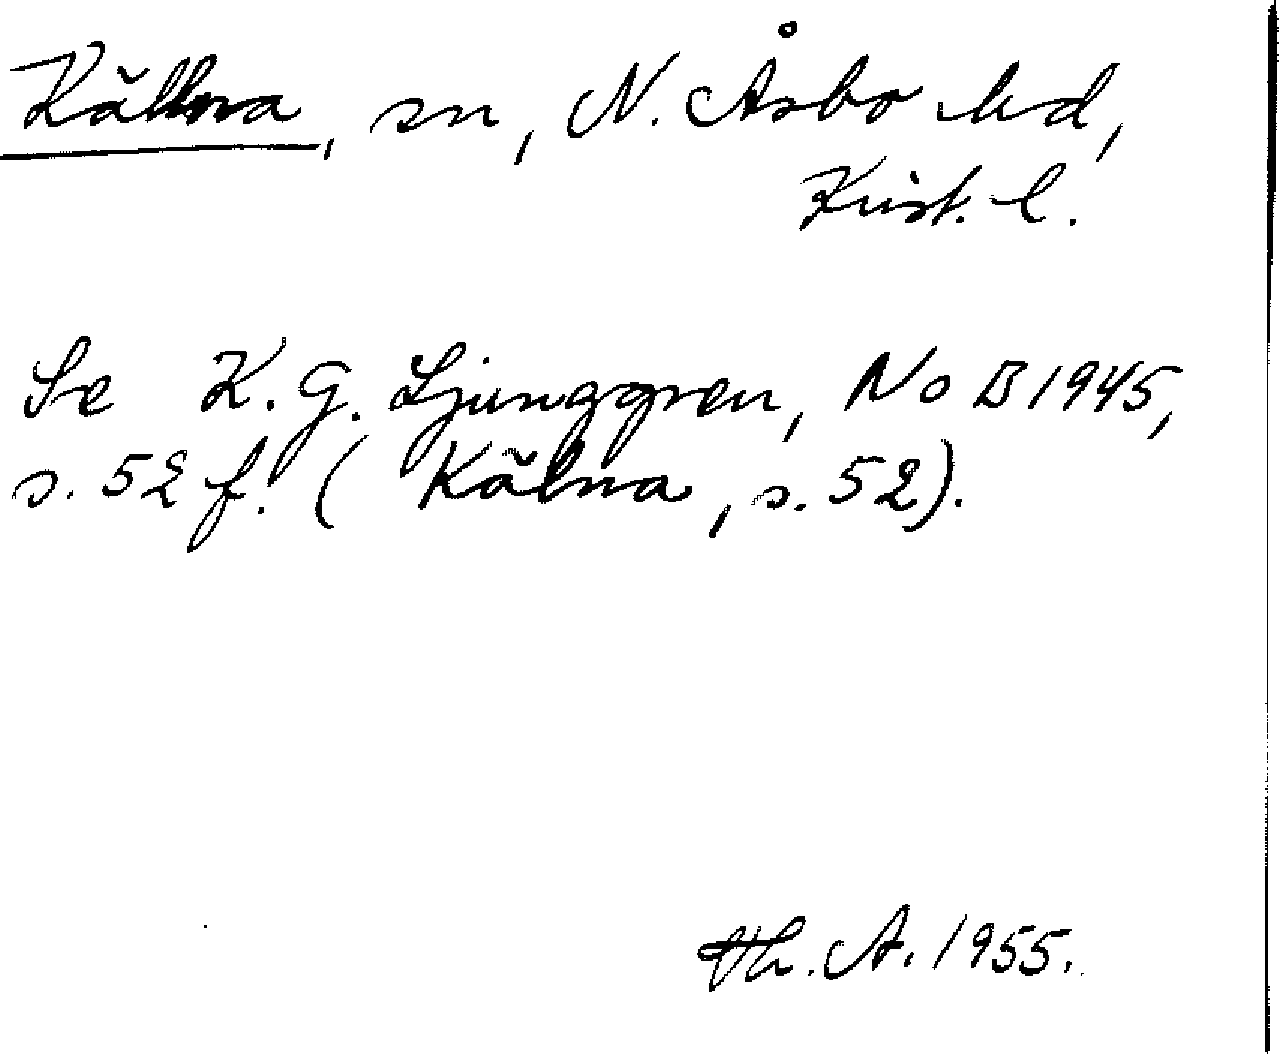 Källna, sn, N. Åsbo hd,
Krist. l.
Se K. G. Ljunggren, NoB 1945,
s. 52 f. (Kälna, s. 52).
Th. A. 1955.